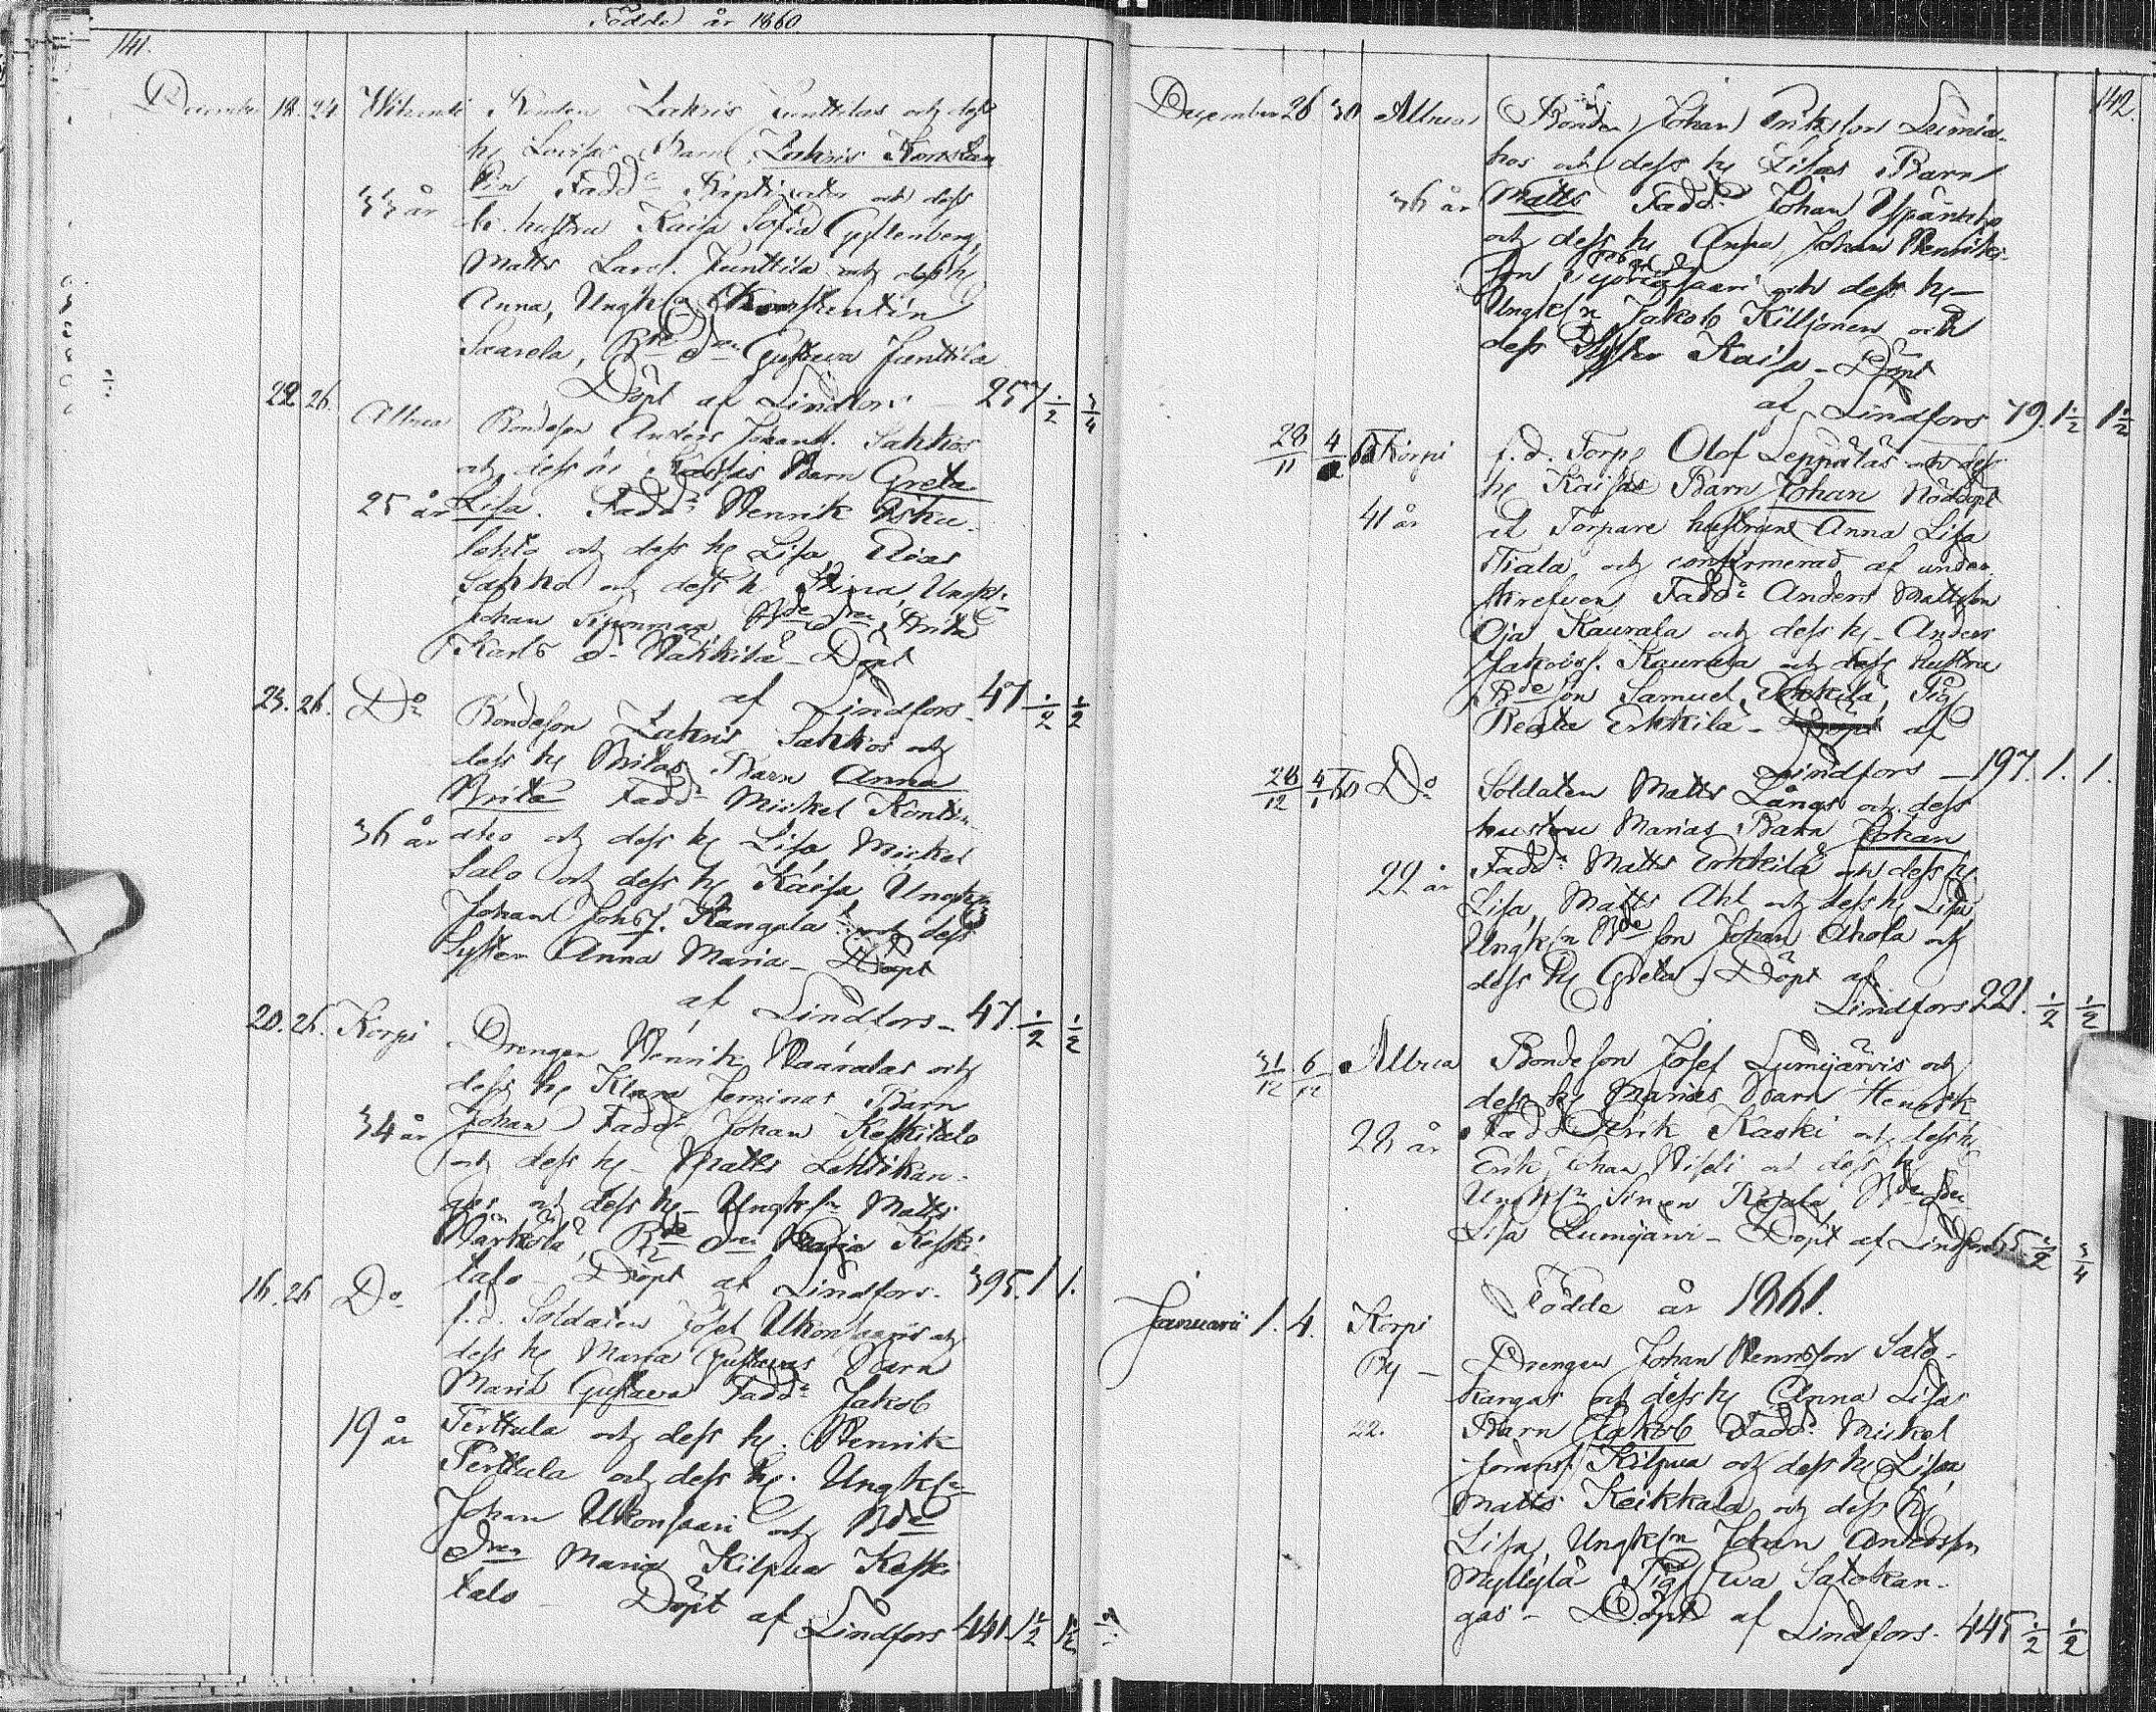 Födde år 1860.
141.
December 18. 24. Bonden Zakris Junttilas och dess
h. Lovisas Barn Zakris Konstan
tin Fadd. och dess
33 år hustru Kaisa Sofia Gyllenberg,
Matts Larss. Junttila och dess h.
Anna, Ungk. Konstentin
Saarela, Bde Dren Gustava Junttila
Döpt af Lindfors 257 1/2 3/4
22. 26. Albrea Bondeson Anders Johanss. Sahkos
och dess h. Kaisas Barn Greta
25 år Lisa. Fadd. Henrik Isku
lehto och dess h. Lisa, Elias
Sahko och dess h. Stina, Ungk.
Johan Siponmaa Bde Dren Brita
Karls d. Wähkilä - Döpt
af Lindfors - 47 1/2 1/2
23. 26. Do Bondeson Zakris Sahkos och
dess h. Britas Barn Anna
Brita Fadd. Mickel Kontin
36 år aho och dess h. Lisa, Mickel
Salo och dess h. Kaisa, Ungk.
Johan Johss. Kangala och dess
Syster Anna Maria - Döpt
af Lindfors - 47. 1/2 1/2
20. 26. Korpi Drengen Henrik Waaralas och
dess h. Klara Jeminas Barn
34 år Johan Fadd. Johan Keskitalo
och dess h. - Matts Lehtikan-
gas och dess h. - Ungksn Matts
Närkölä, Bde Dren Maria Keski
talo - Döpt af Lindfors. 395. 1 1.
16. 26 Do f.d. Soldaten Josef Ukonsaaris och
dess h. Maria Gustavas Barn
Maria Gustava Fadd. Jakob
19 år Perttula och dess h. Henrik
Perttula och dess h. Ungksn
Johan Ukonsaari och Bde
Dren Maria Kilpua Keski
talo - Döpt af Lindfors 441. 1 1/2 1 1/2
142.
December 26 30 Albrea Bonden Johan Erikson Lumia-
hos och dess h. Lisas Barn
36 år Matts Fadd. Johan Ypänaho
och dess h. Anna, Johan Henriks-
son och dess h.
Ungksn Jakob Killjonen och
dess Syster Kaisa - Döpt
af Lindfors 79. 1 1/2 1 1/2
28/11 4/2 Korpi f.d. Torp. Olof Leppäläs och dess
h. Kaisas Barn Johan Nöddöpt
41 år at Torpare hustrun Anna Lisa
Tiala och confirmerad af under-
skrefven Fadd. Anders Mattson
Oja Kaurala och dess h. - Anders
Jakobss. Kaurala och dess hustru
Bde son Samuel Erkkilä, Pig
Beata Erkkilä - Döpt af
Lindfors - 197. 1. 1.
28/12 4/1 Do Soldaten Matts Långs och dess
hustru Marias Barn Johan
22 år Fadd. Matts Erkkilä och dess h.
Lisa, Matts Ahl och dess h. Lisa
Ungksn Bde son Johan Ahola och
dess h. Greta - Döpt af
Lindfors 221. 1/2 1/2
31/12 6/12 Albrea Bondeson Josef Lumijärvis och
dess h. Marias Barn Henrik
28 år Fadd. Erik Kaski och dess h.
Erik Johan och dess h.
Ungksn Simon Rajala, Bde Dren
Lisa Lumijärvi - Döpt af Lindfors 65 1/2 3/4
Födde år 1861.
Januari 1. 4. Korpi
By - Drengen Johan Hennrsson Sato-
kangas och dess h. Anna Lisas
22. Barn Jakob Fadd. Mickel
Joranss. Kilpua och dess h. Lisa,
Matts Keikkala och dess h.
Lisa, Ungksn Johan Andersson
Myllylä Pig Ewa Satokan-
gas - Döpt af Lindfors. 445 1/2 1/2